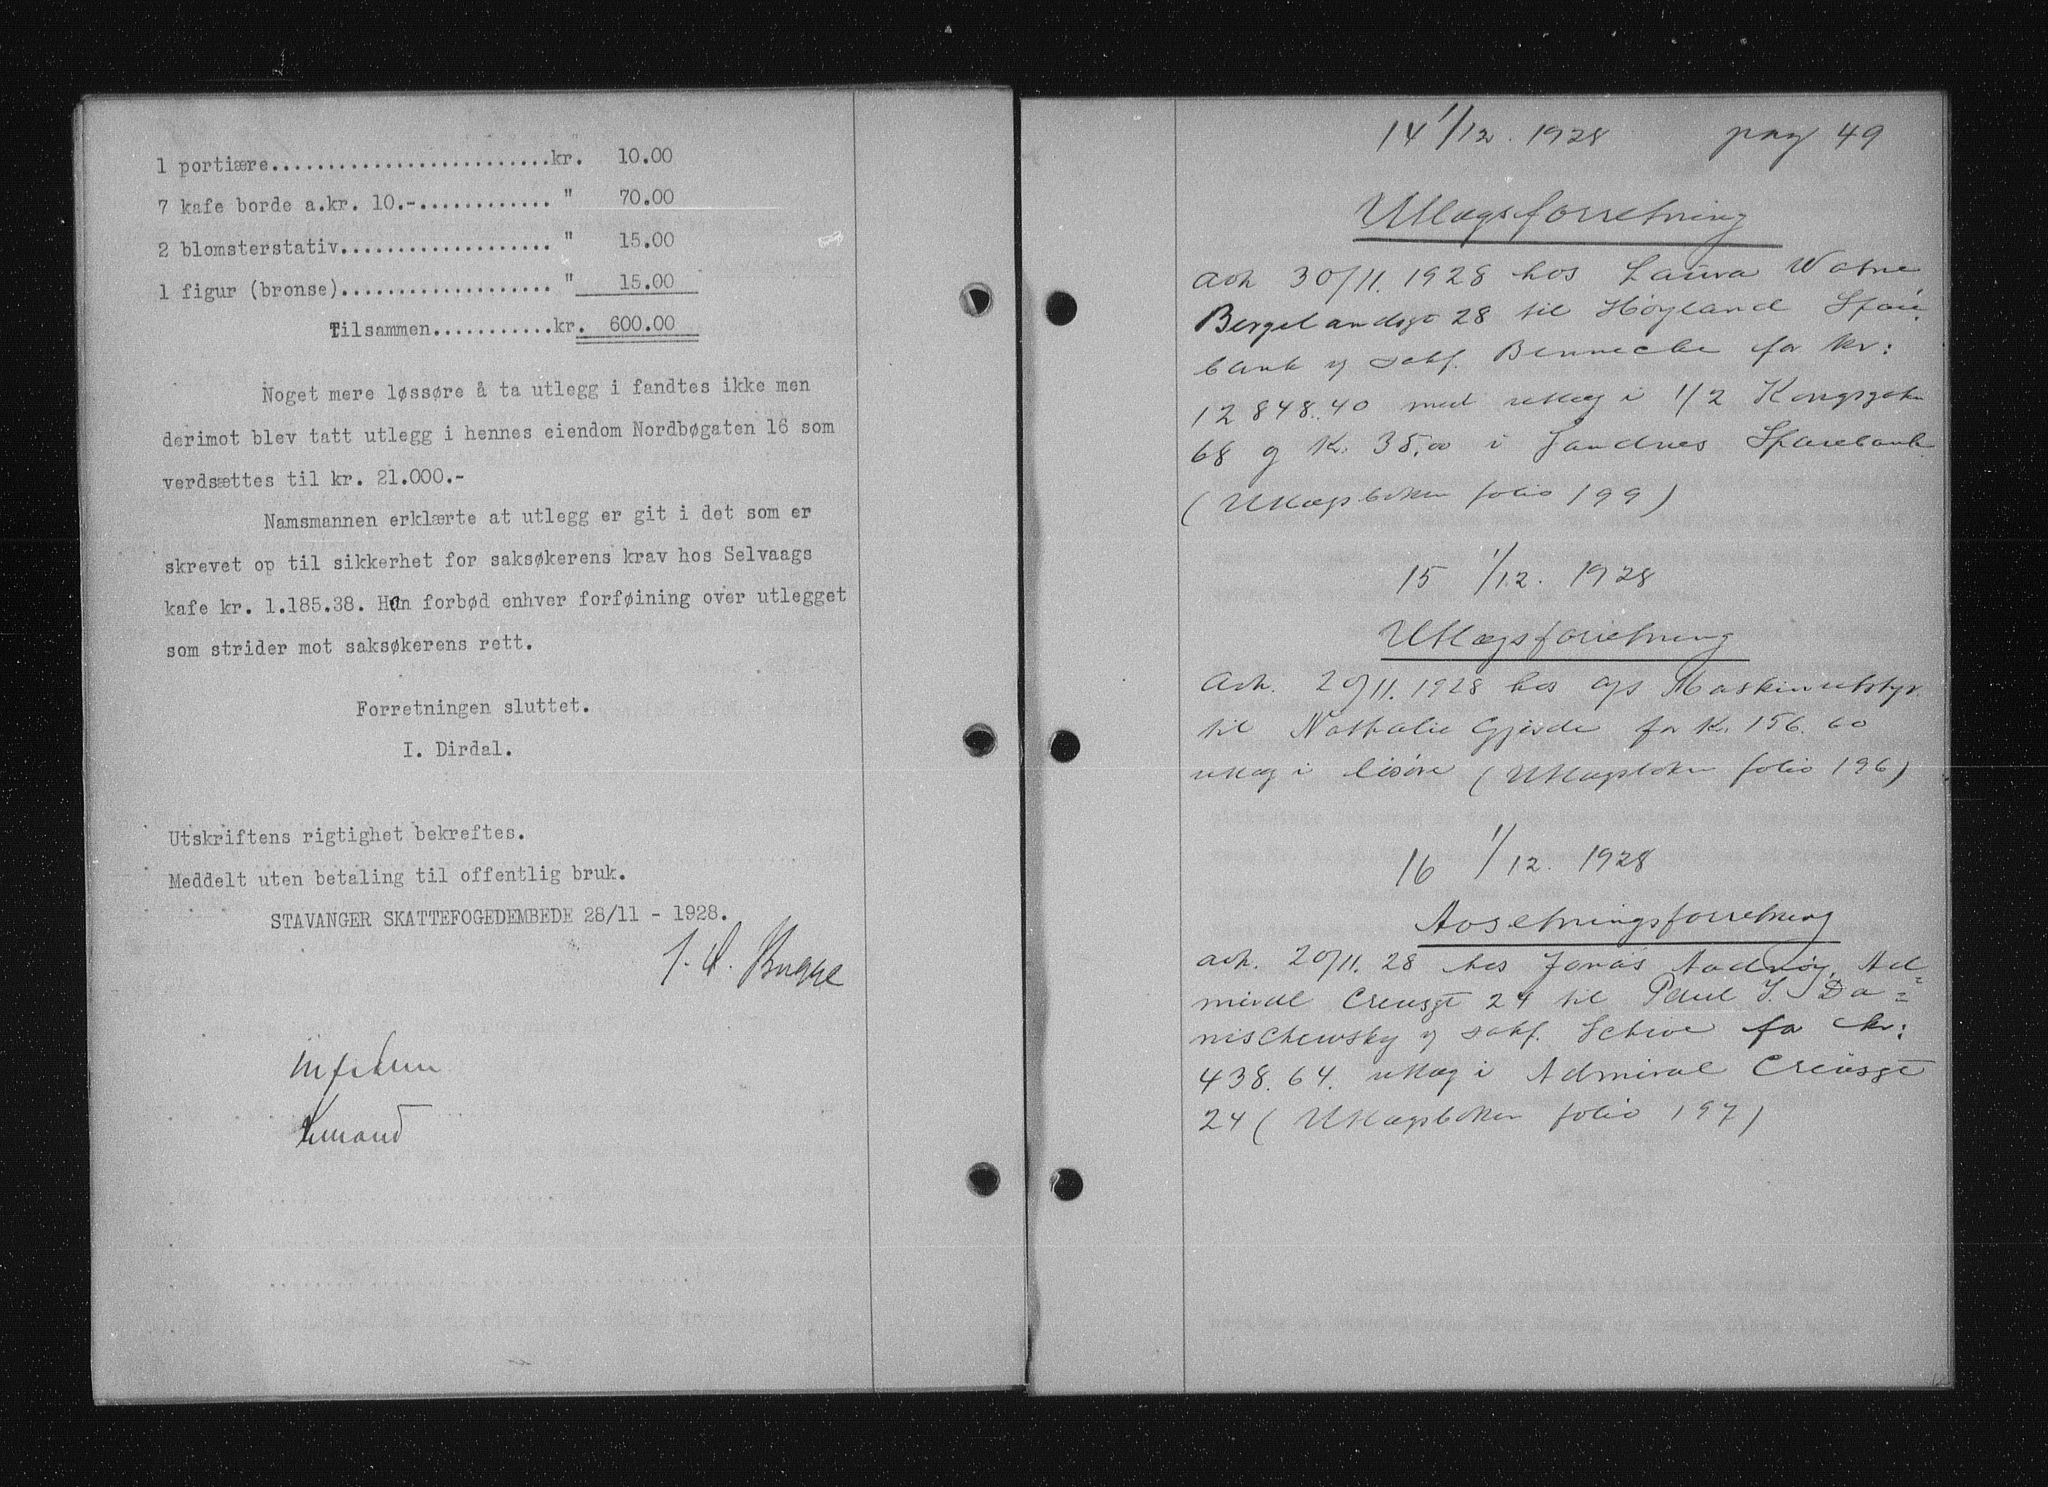 1 portiære..............................kr. 10.00
7 kafe borde a.kr. 10.-.............. " 70.00
2 blomsterstativ...................... " 15.00
1 figur (bronse)...................... " 15.00
Tilsammen...........kr. 600.00
Noget mere løssøre å ta utlegg i fandtes ikke men
derimot blev tatt utlegg i hennes eiendom Nordbøgaten 16 som
verdsættes til kr. 21.000.-
Namsmannen erklærte at utlegg er git i det som er
skrevet op til sikkerhet for saksøkerens krav hos Selvaags
kafe kr. 1.185.38. Han forbød enhver forføining over utlegget
som strider mot saksøkerens rett.
Forretningen sluttet.
I. Dirdal.
Utskriftens rigtighet bekreftes.
Meddelt uten betaling til offentlig bruk.
STAVANGER SKATTEFOGEDEMBEDE 28/11 - 1928.
Bugge
14 1/12. 1928 pag 49
Utlægsforretning
avh 30/11. 1928 hos Laura Watne
Bergelandsgt 28 til Høyland Spare
bank og sakf. Benneche for kr:
12848.40 med utlæg i 1/2 Kongsgaten
68 og Kr. 35,00 i Sandnes Sparebank
(Utlægsboken folio 199)
15 1/12. 1928
Utlægsforretning
avh. 20/11. 1928 hos a/s Maskinutstyr
til Nathalie Gjesde for Kr. 156.60
utlæg i løsøre (Utlægsboken folio 196)
16 1/12. 1928
Avsetningsforretning
avh. 20/11. 28 hos Jonas Aadnøy, Ad=
miral Creusgt 24 til Paul J. Da=
nischewsky og sakf. Schive for kr:
438.64. utlæg i Admiral Creusgt
24 (Utlægsboken folio 197)